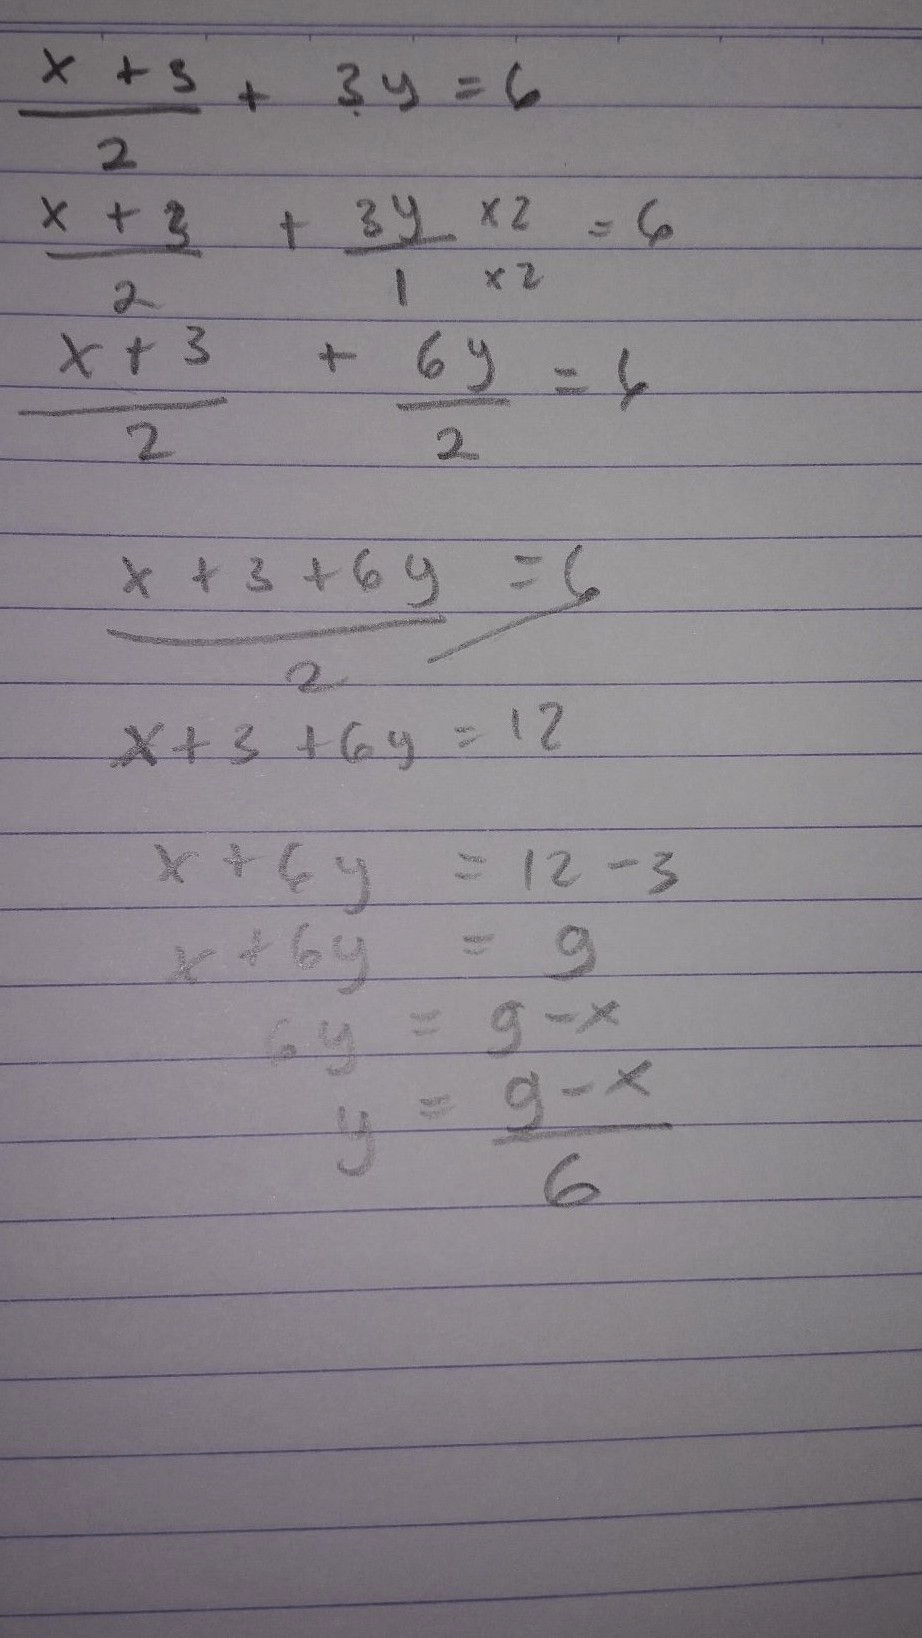 x + 3 / 2 + 3y = 6
x + 3 / 2 + 3y / 1 x2 / x2 = 6
x + 3 / 2 + 6y / 2 = 6
x + 3 + 6y / 2 = 6
x + 3 + 6y = 12
x + 6y = 12 - 3
x + 6y = 9
6y = 9 - x
y = 9 - x / 6